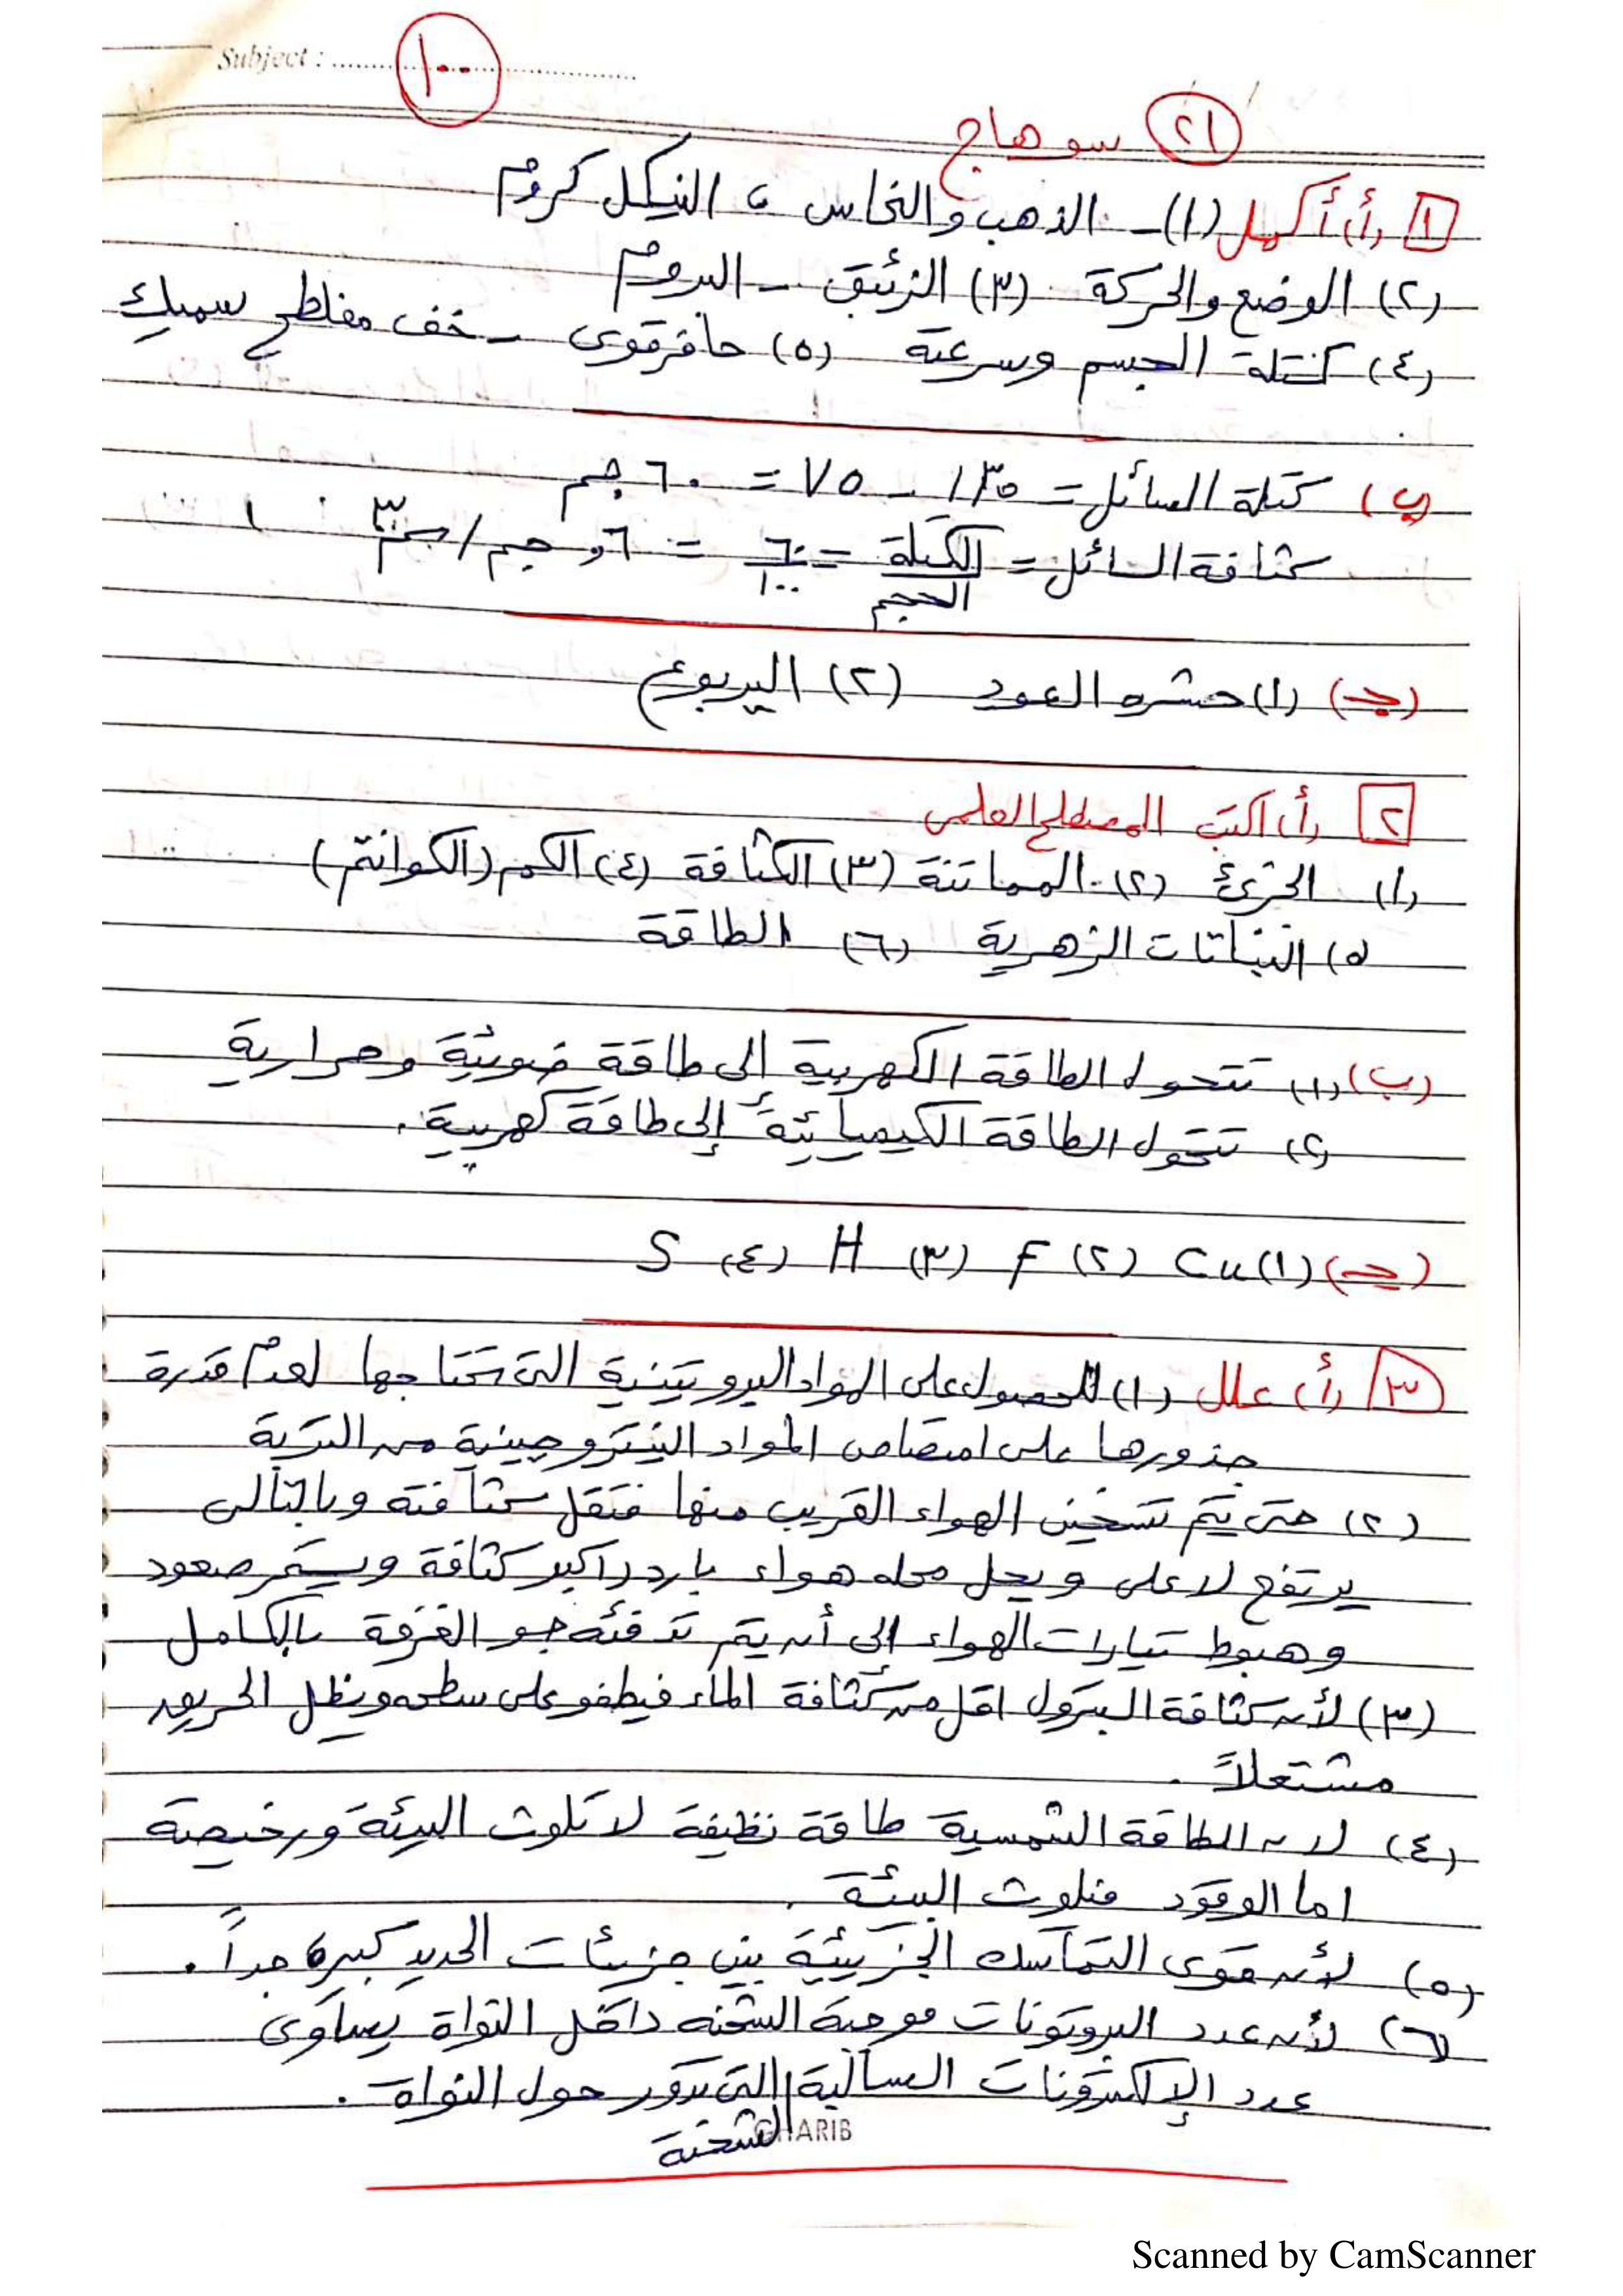 Subject : ........ ١٠٠ ........
(٢١) سوهاج
[١] (أ) أكمل (١) - الذهب والنحاس ، النيكل كروم
(٢) الوضع والحركة (٣) الزئبق - البروم
(٤) كتلة الجسم وسرعته (٥) حافر قوى - خف مفلطح سميك
(ب) كتلة السائل = ١٣٥ - ٧٥ = ٦٠ جم
كثافة السائل = الكتلة / الحجم = ٦٠ / ١٠٠ = ٦, جم / سم٣
(جـ) (١) حشره العود (٢) اليربوع
[٢] (أ) اكتب المصطلح العلمى
(١) الجزئ (٢) المماتنة (٣) الكثافة (٤) الكم (الكوانتم)
(٥) النباتات الزهرية (٦) الطاقة
(ب) (١) تتحول الطاقة الكهربية إلى طاقة ضوئية وحرارية
(٢) تتحول الطاقة الكيميائية إلى طاقة كهربية.
(جـ) (١) Cu (٢) F (٣) H (٤) S
[٣] (أ) علل (١) للحصول على المواد البروتينية التى تحتاجها لعدم قدرة
جذورها على امتصاص المواد النيتروجينية من التربة
(٢) حتى يتم تسخين الهواء القريب منها فتقل كثافته وبالتالى
يرتفع لاعلى ويحل محله هواء بارد اكبر كثافة ويستمر صعود
وهبوط تيارات الهواء إلى أن يتم تدفئه جو الغرفة بالكامل
(٣) لأن كثافة البترول اقل من كثافة الماء فيطفو على سطحه ويظل الحريق
مشتعلاً .
(٤) لان الطاقة الشمسية طاقة نظيفة لا تلوث البيئة ورخيصة
اما الوقود فتلوث البيئة .
(٥) لأن قوى التماسك الجزيئية بين جزيئات الحديد كبيرة جداً .
(٦) لأن عدد البروتونات موجبة الشحنه داخل النواة يساوى
عدد الإلكترونات السالبة التى تدور حول النواة .
الشحنة
GHARIB
Scanned by CamScanner